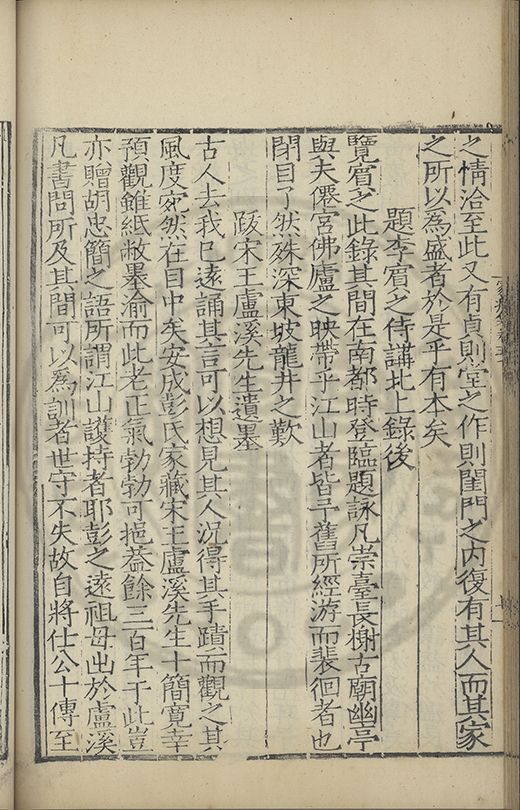 之情洽至此又有貞則堂之作則閨門之內復有其人而其家
之所以為盛者於是乎有本矣
題李賓之侍講北上錄後
覽賓之此錄其間在南都時登臨題詠凡崇臺長榭古廟幽亭
與夫僊宮佛廬之映帶乎江山者皆予舊所經游而裴徊者也
閉目了然殊深東坡龍井之歎
䟦宋王盧溪先生遺墨
古人去我已遠誦其言可以想見其人況得其手蹟而觀之其
風度宛然在目中矣安成彭氏家藏宋王盧溪先生十簡寬幸
預觀雖紙敝墨渝而此老正氣勃勃可挹葢餘三百年于此豈
亦贈胡忠簡之語所謂江山護持者耶彭之遠祖母出於盧溪
凡書問所及其間可以為訓者世守不失故自將仕公十傳至